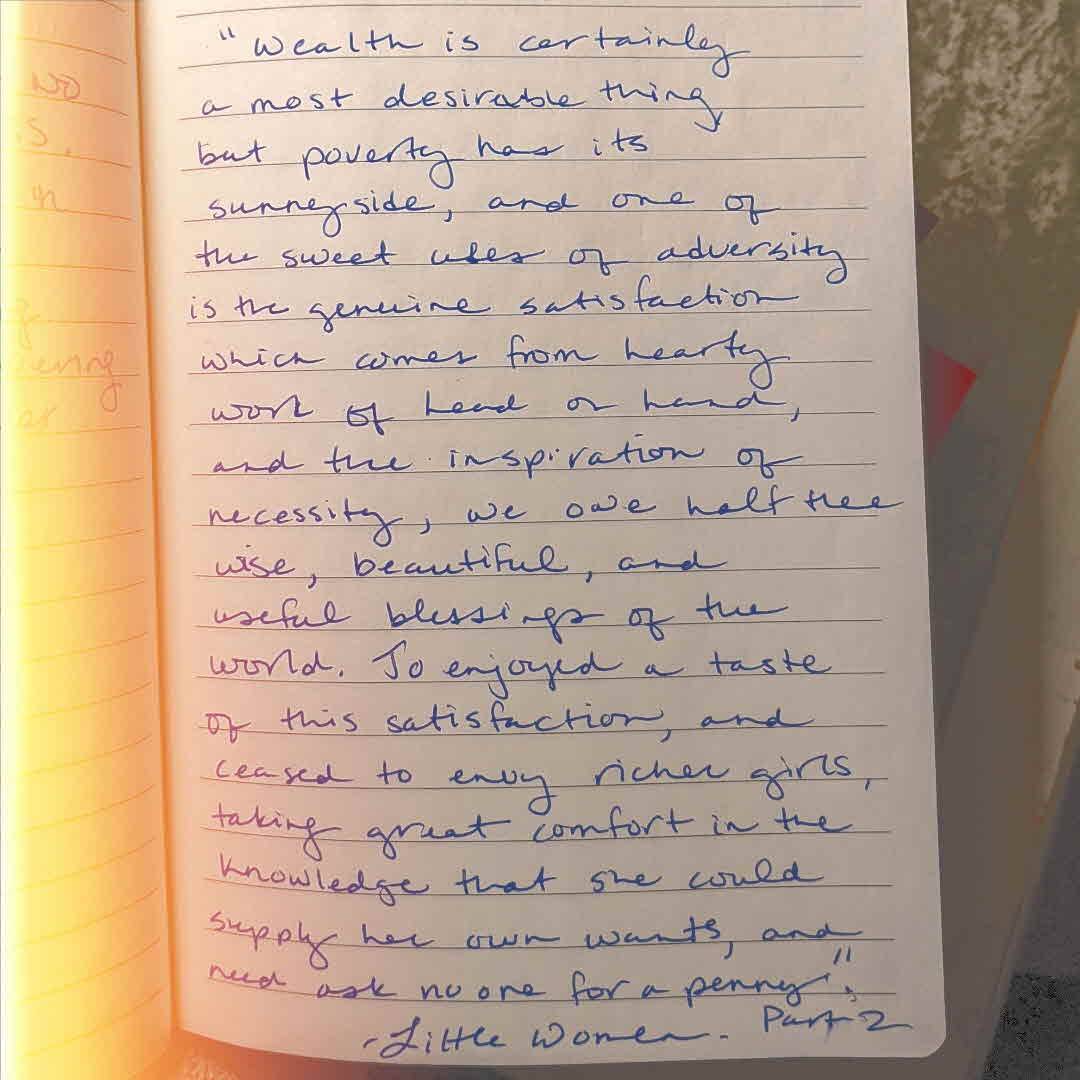 NO
is.
in
"Wealth is certainly
a most desirable thing,
but poverty has its
sunny side, and one of
the sweet uses of adversity
is the genuine satisfaction
which comes from hearty
work of head or hand,
and the inspiration of
necessity, we owe half the
wise, beautiful, and
useful blessings of the
world. Jo enjoyed a taste
of this satisfaction, and
ceased to envy richer girls,
taking great comfort in the
knowledge that she could
supply her own wants, and
need ask no one for a penny".
- Little Women. Part 2